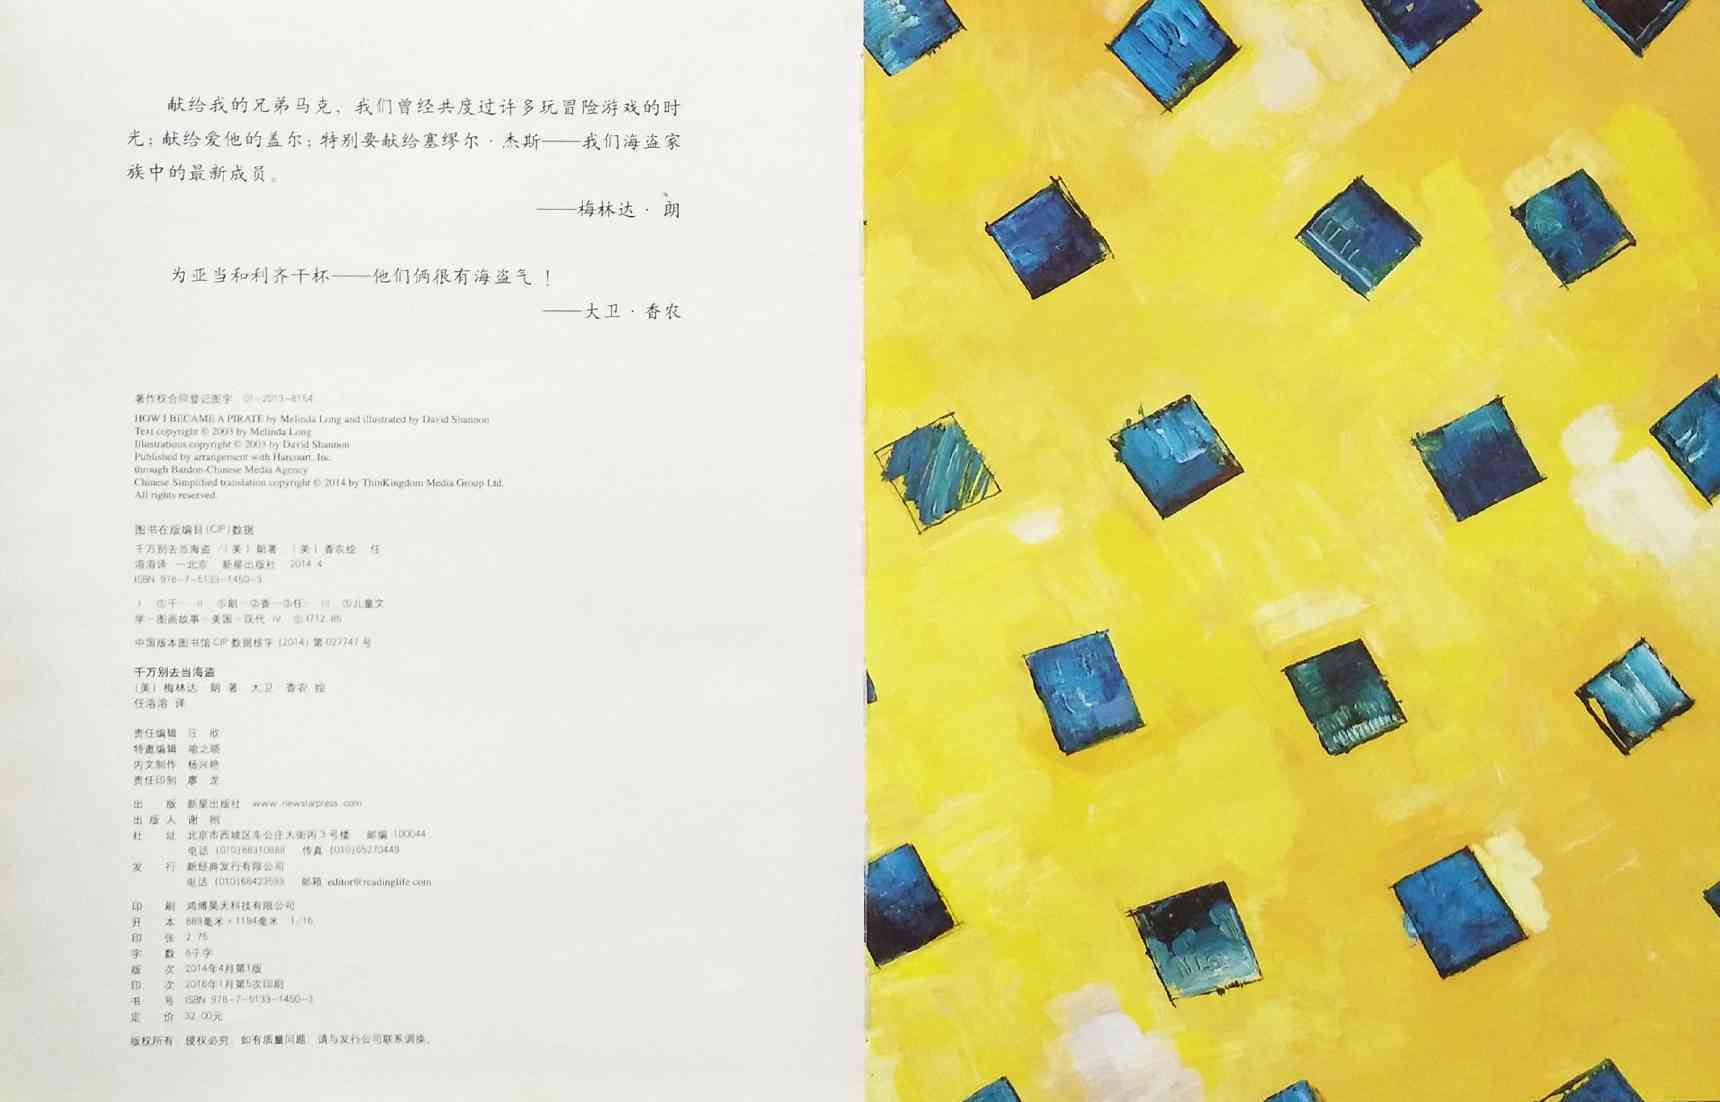 献给我的兄弟马克，我们曾经共度过许多玩冒险游戏的时
光；献给爱他的盖尔；特别要献给塞缪尔·杰斯——我们海盗家
族中的最新成员。
——梅林达·朗
为亚当和利齐干杯——他们俩很有海盗气！
——大卫·香农
著作权合同登记图字 01-2013-8154
HOW I BECAME A PIRATE by Melinda Long and illustrated by David Shannon
Text copyright © 2003 by Melinda Long
Illustrations copyright © 2003 by David Shannon
Published by arrangement with Harcourt, Inc.
through Bardon-Chinese Media Agency
Chinese Simplified translation copyright © 2014 by ThinKingdom Media Group Ltd.
All rights reserved.
图书在版编目(CIP)数据
千万别去当海盗 /（美）朗著 （美）香农绘 任
溶溶译 —北京 新星出版社 2014.4
ISBN 978-7-5133-1450-3
Ⅰ ①千… Ⅱ ①朗…②香…③任… Ⅲ ①儿童文
学-图画故事-美国-现代 Ⅳ ①I712.85
中国版本图书馆CIP数据核字(2014)第027747号
千万别去当海盗
（美）梅林达·朗 著 大卫·香农 绘
任溶溶 译
责任编辑 汪 欣
特邀编辑 喻之晓
内文制作 杨兴艳
责任印制 廖 龙
出 版 新星出版社 www.newstarpress.com
出 版 人 谢 刚
社 址 北京市西城区车公庄大街丙3号楼 邮编 100044
电话 (010)88310888 传真 (010)65270449
发 行 新经典发行有限公司
电话 (010)68423599 邮箱 editor@readinglife.com
印 刷 鸿博昊天科技有限公司
开 本 889毫米×1194毫米 1/16
印 张 2.75
字 数 6千字
版 次 2014年4月第1版
印 次 2016年1月第5次印刷
书 号 ISBN 978-7-5133-1450-3
定 价 32.00元
版权所有 侵权必究 如有质量问题 请与发行公司联系调换。